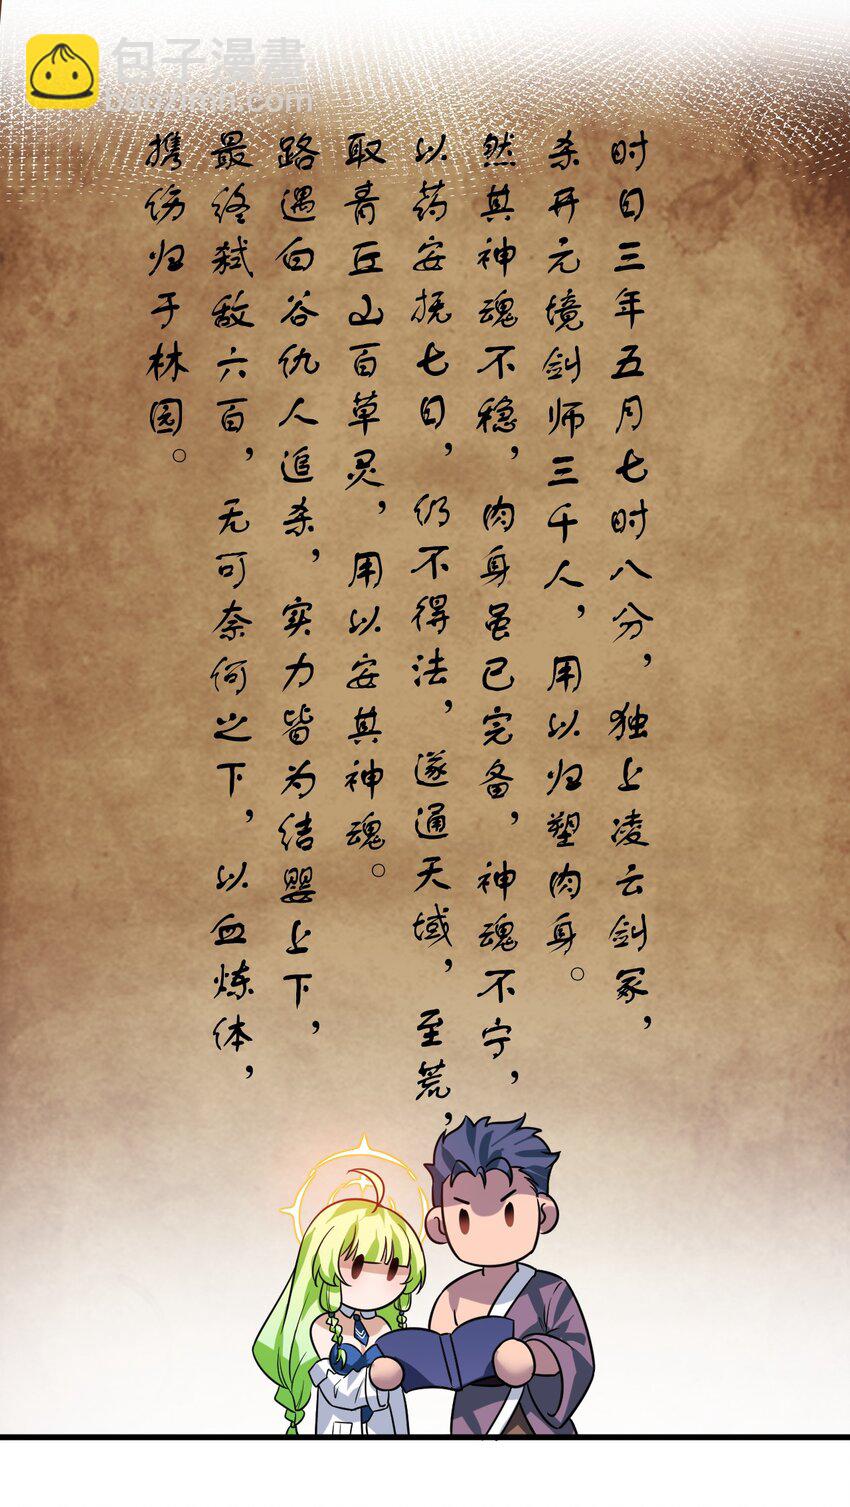 包子漫畫
baozimh.com
时日三年五月七时八分，独上凌云剑冢，
杀开元境剑师三千人，用以归塑肉身。
然其神魂不稳，肉身虽已完备，神魂不宁，
以药安抚七日，仍不得法，遂通天域，至荒，
取青丘山百草灵，用以安其神魂。
路遇白谷仇人追杀，实力皆为结婴上下，
最终弑敌六百，无可奈何之下，以血炼体，
携伤归于林园。